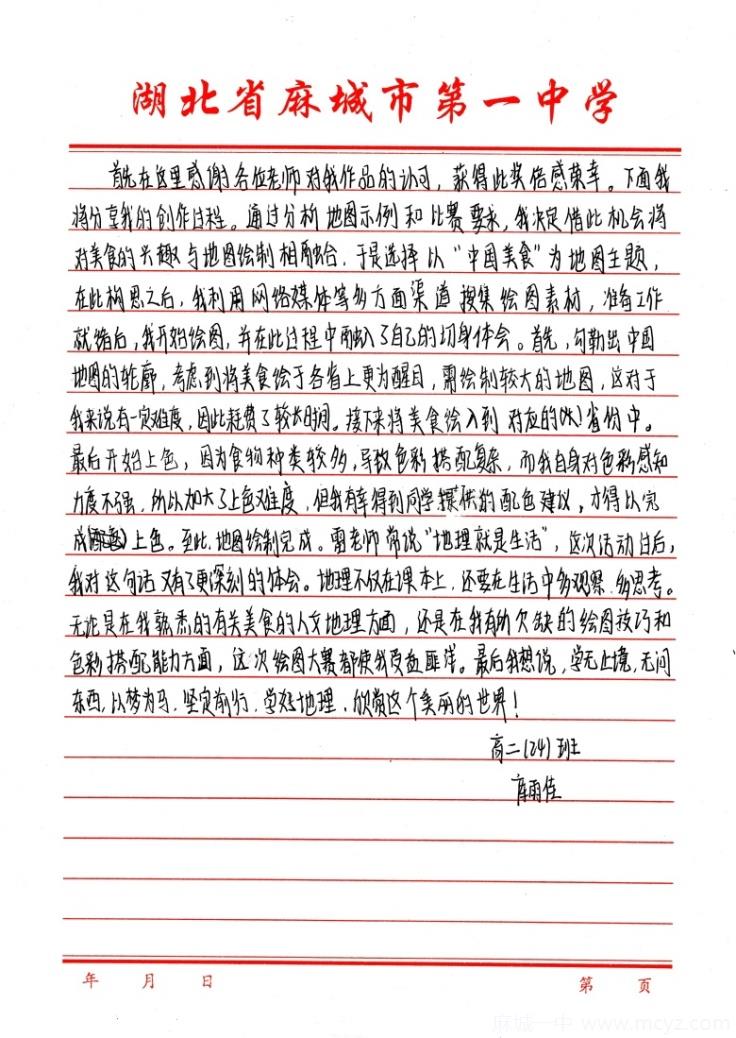 湖北省麻城市第一中学
首先在这里感谢各位老师对我作品的认可，获得此奖倍感荣幸。下面我
将分享我的创作过程。通过分析地图示例和比赛要求，我决定借此机会将
对美食的兴趣与地图绘制相融合，于是选择以“中国美食”为地图主题，
在此构思之后，我利用网络媒体等多方面渠道搜集绘图素材，准备工作
就绪后，我开始绘图，并在此过程中融入了自己的切身体会。首先，勾勒出中国
地图的轮廓，考虑到将美食绘于各省上更为醒目，需绘制较大的地图，这对于
我来说有一定难度，因此耗费了较长时间。接下来将美食绘入到对应的省份中。
最后开始上色，因为食物种类较多，导致色彩搭配复杂，而我自身对色彩感知
力度不强，所以加大了上色难度，但我有幸得到同学提供的配色建议，才得以完
成上色。至此，地图绘制完成。雷老师常说“地理就是生活”，这次活动日后，
我对这句话又有了更深刻的体会。地理不仅在课本上，还要在生活中多观察，多思考。
无论是在我熟悉的有关美食的人文地理方面，还是在我有所欠缺的绘图技巧和
色彩搭配能力方面，这次绘图大赛都使我受益匪浅。最后我想说，学无止境，无问
东西，以梦为马，坚定前行，学好地理，欣赏这个美丽的世界！
高二(24)班
雨佳
年 月 日 第 页
麻城一中 www.mcyz.com